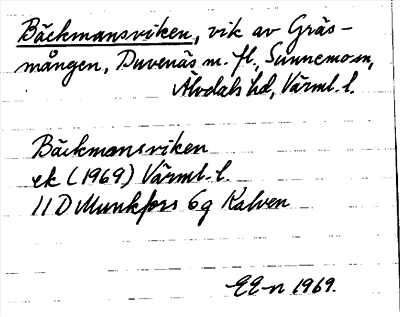 Bäckmansviken, vik av Gräs-
mången, Duvenäs m. fl., Sunnemo sn,
Älvdals hd, Värml. l.
Bäckmansviken
ek (1969) Värml. l.
11 D Munkfors 6g Kalven
EE-n 1969.